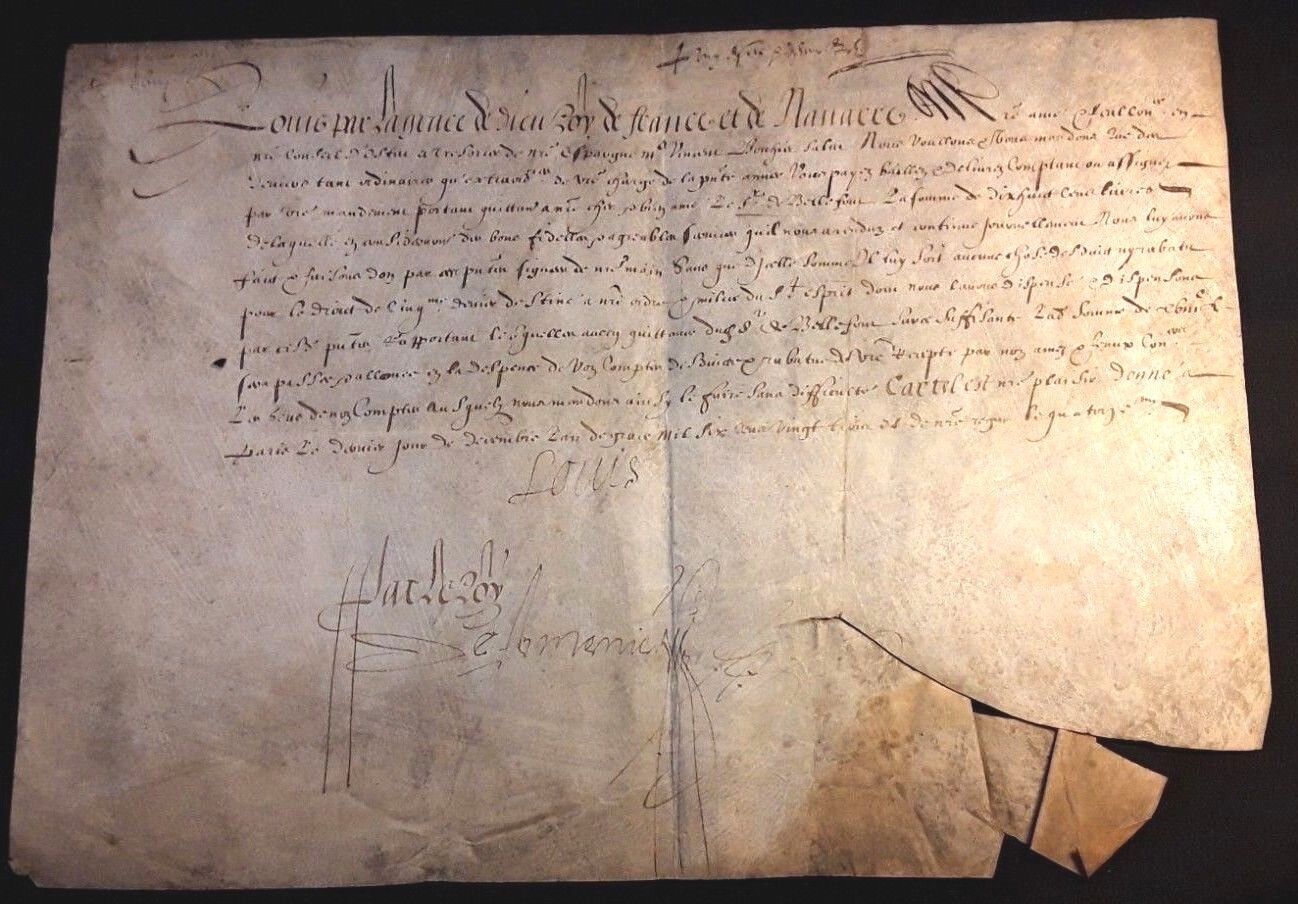 Louis par la grace de dieu Roy de france et de Navarre A nre ame et feal con.er en
nre conseil d'Estat et tresorier de nre Espargne m.e Vincent Bouhier salut Nous voullons et vous mandons que des
deniers tant ordinaires qu'extraord.res de vre charge de la pnte annee vous payez baillez et delivrez comptant ou assignez
par vre mandement portant quittance a nre cher et bien ame Le s.r de Bellefont La somme de dixhuict cens livres
de laquelle en consideration des bons fidelles et agreables services qu'il nous a rendus et continue journellement Nous luy avons
faict et faisons don par ces pntes signees de nre main Sans que d'icelle somme Il luy soit aucune chose desduict ny rabatu
pour le droict de cinq.me denier destine a nre ordre et milice du s.t esprit dont nous l'avons dispense et dispensons
par cesd. pntes Rapportant lesquelles avecq quittance dud. s.r de Bellefont sur ce suffisante Lad. somme de
sera passee et allouee en la despence de voz comptes desduicte et rabatue de vre Recepte par noz amez et feaux con.ers
Les gens de noz comptes Ausquelz nous mandons ainsy le faire sans difficulte Car tel est nre plaisir donne a
Paris Le dernier jour de decembre L'an de grace Mil six cens vingt trois et de nre regne le quatorze.me
Louis
Par le Roy
De Lomenie